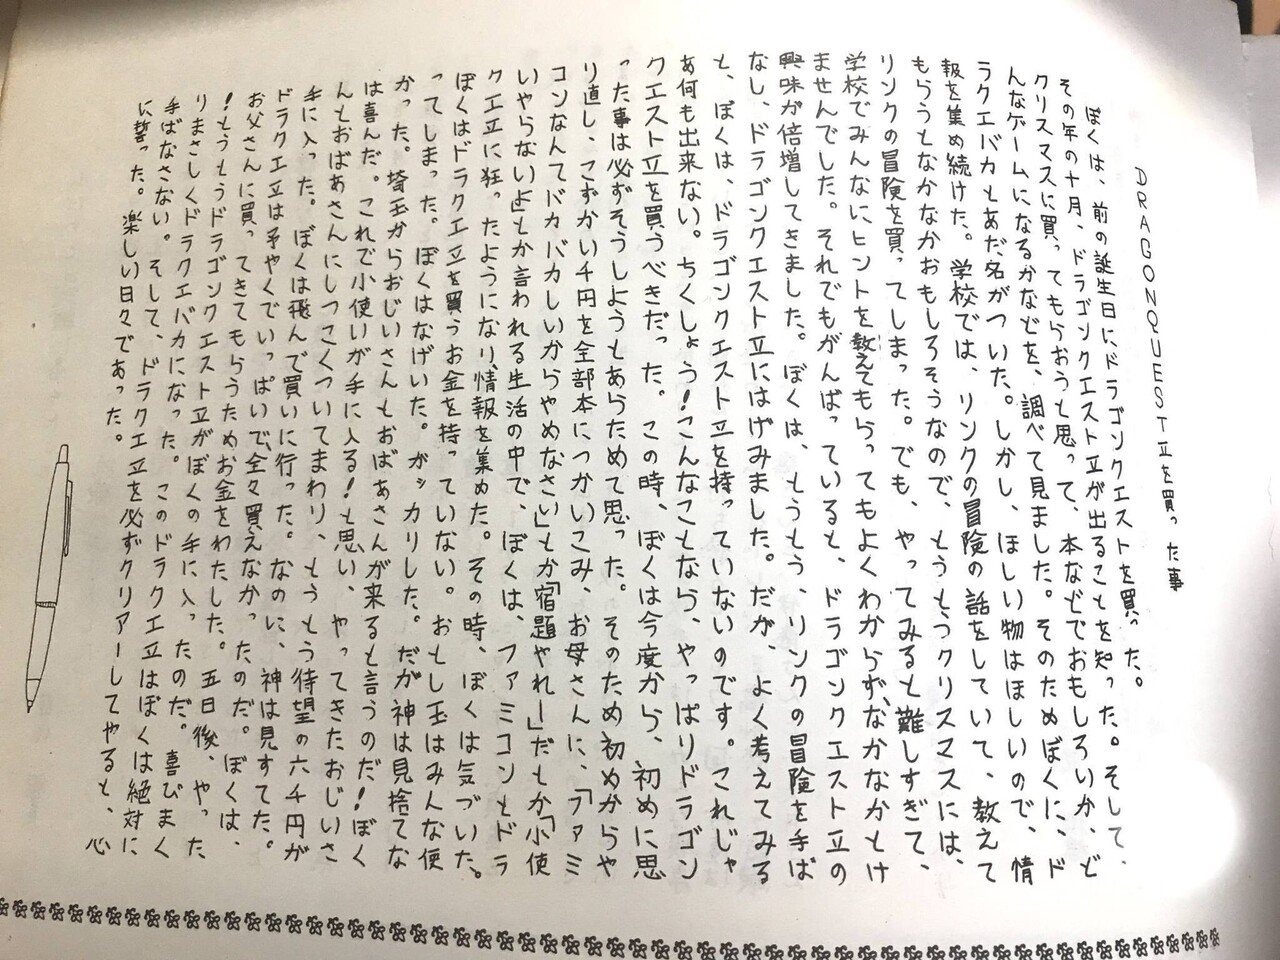 DRAGONQUEST立を買った事
ぼくは、前の誕生日にドラゴンクエストを買った。
その年の十月、ドラゴンクエスト立が出ることを知った。そして、
クリスマスに買ってもらおうと思って、本などでおもしろいか、ど
んなゲームになるかなどを、調べて見ました。そのためぼくに、ド
ラクエバカとあだ名がついた。しかし、ほしい物はほしいので、情
報を集め続けた。学校では、リンクの冒険の話をしていて、教えて
もらうとなかなかおもしろそうなので、とうとうクリスマスには、
リンクの冒険を買ってしまった。でも、やってみると難しすぎて、
学校でみんなにヒントを教えてもらってもよくわからず、なかなかとけ
ませんでした。それでもがんばっていると、ドラゴンクエスト立の
興味が倍増してきました。ぼくは、とうとう、リンクの冒険を手ば
なし、ドラゴンクエスト立にはげみました。だが、よく考えてみる
と、ぼくは、ドラゴンクエスト立を持っていないのです。これじゃ
あ何も出来ない。ちくしょう!こんなことなら、やっぱりドラゴン
クエスト立を買うべきだった。この時、ぼくは今度から、初めに思
った事は必ずそうしようとあらためて思った。そのため初めからや
り直し、こずかい千円を全部本につかいこみ、お母さんに、「ファミ
コンなんてバカバカしいからやめなさい」とか「宿題やれー」だとか「小使
いやらないよ」とか言われる生活の中で、ぼくは、ファミコンとドラ
クエ立に狂ったようになり、情報を集めた。その時、ぼくは気づいた。
ぼくはドラクエ立を買うお金を持っていない。おとし玉はみんな使
ってしまった。ぼくはなげいた。ガッカリした。だが神は見捨てな
かった。埼玉からおじいさんとおばあさんが来ると言うのだ!ぼく
は喜んだ。これで小使いが手に入る!と思い、やってきたおじいさ
んとおばあさんにしつこくついてまわり、とうとう待望の六千円が
手に入った。ぼくは飛んで買いに行った。なのに、神は見すてた。
ドラクエ立は予やくでいっぱいで、全々買えなかったのだ。ぼくは、
お父さんに買ってきてもらうためお金をわたした。五日後、やった
!とうとうドラゴンクエスト立がぼくの手に入ったのだ。喜びまく
りまさしくドラクエバカになった。このドラクエ立はぼくは絶対に
手ばなさない。そして、ドラクエ立を必ずクリアーしてやると、心
に誓った。楽しい日々であった。